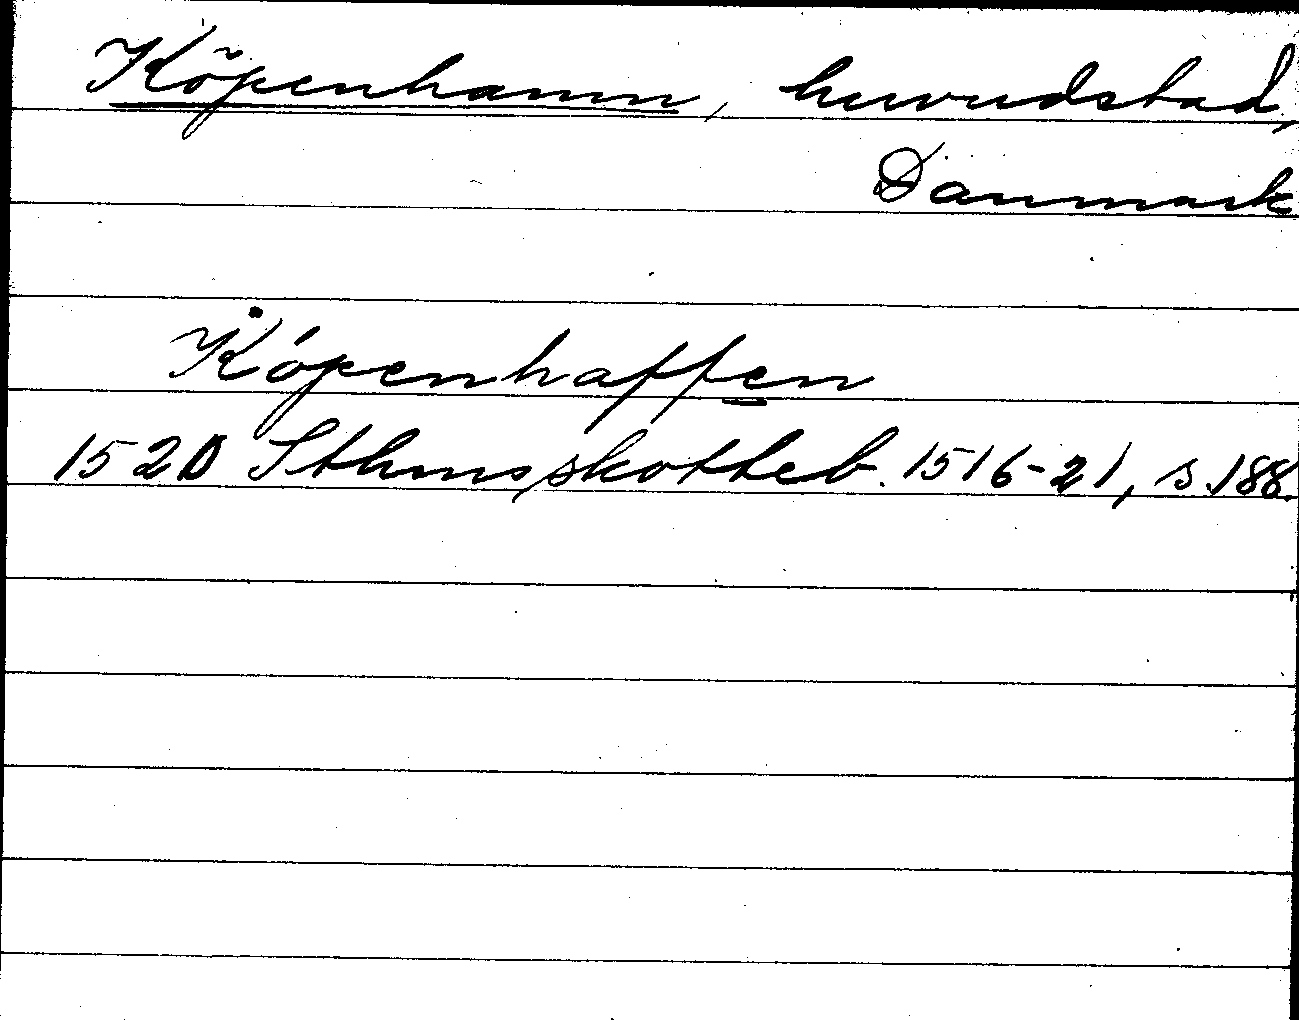 Köpenhamn, huvudstad,
Danmark
Köpenhaffen
1520 Sthms skotteb. 1516-21, s. 188.